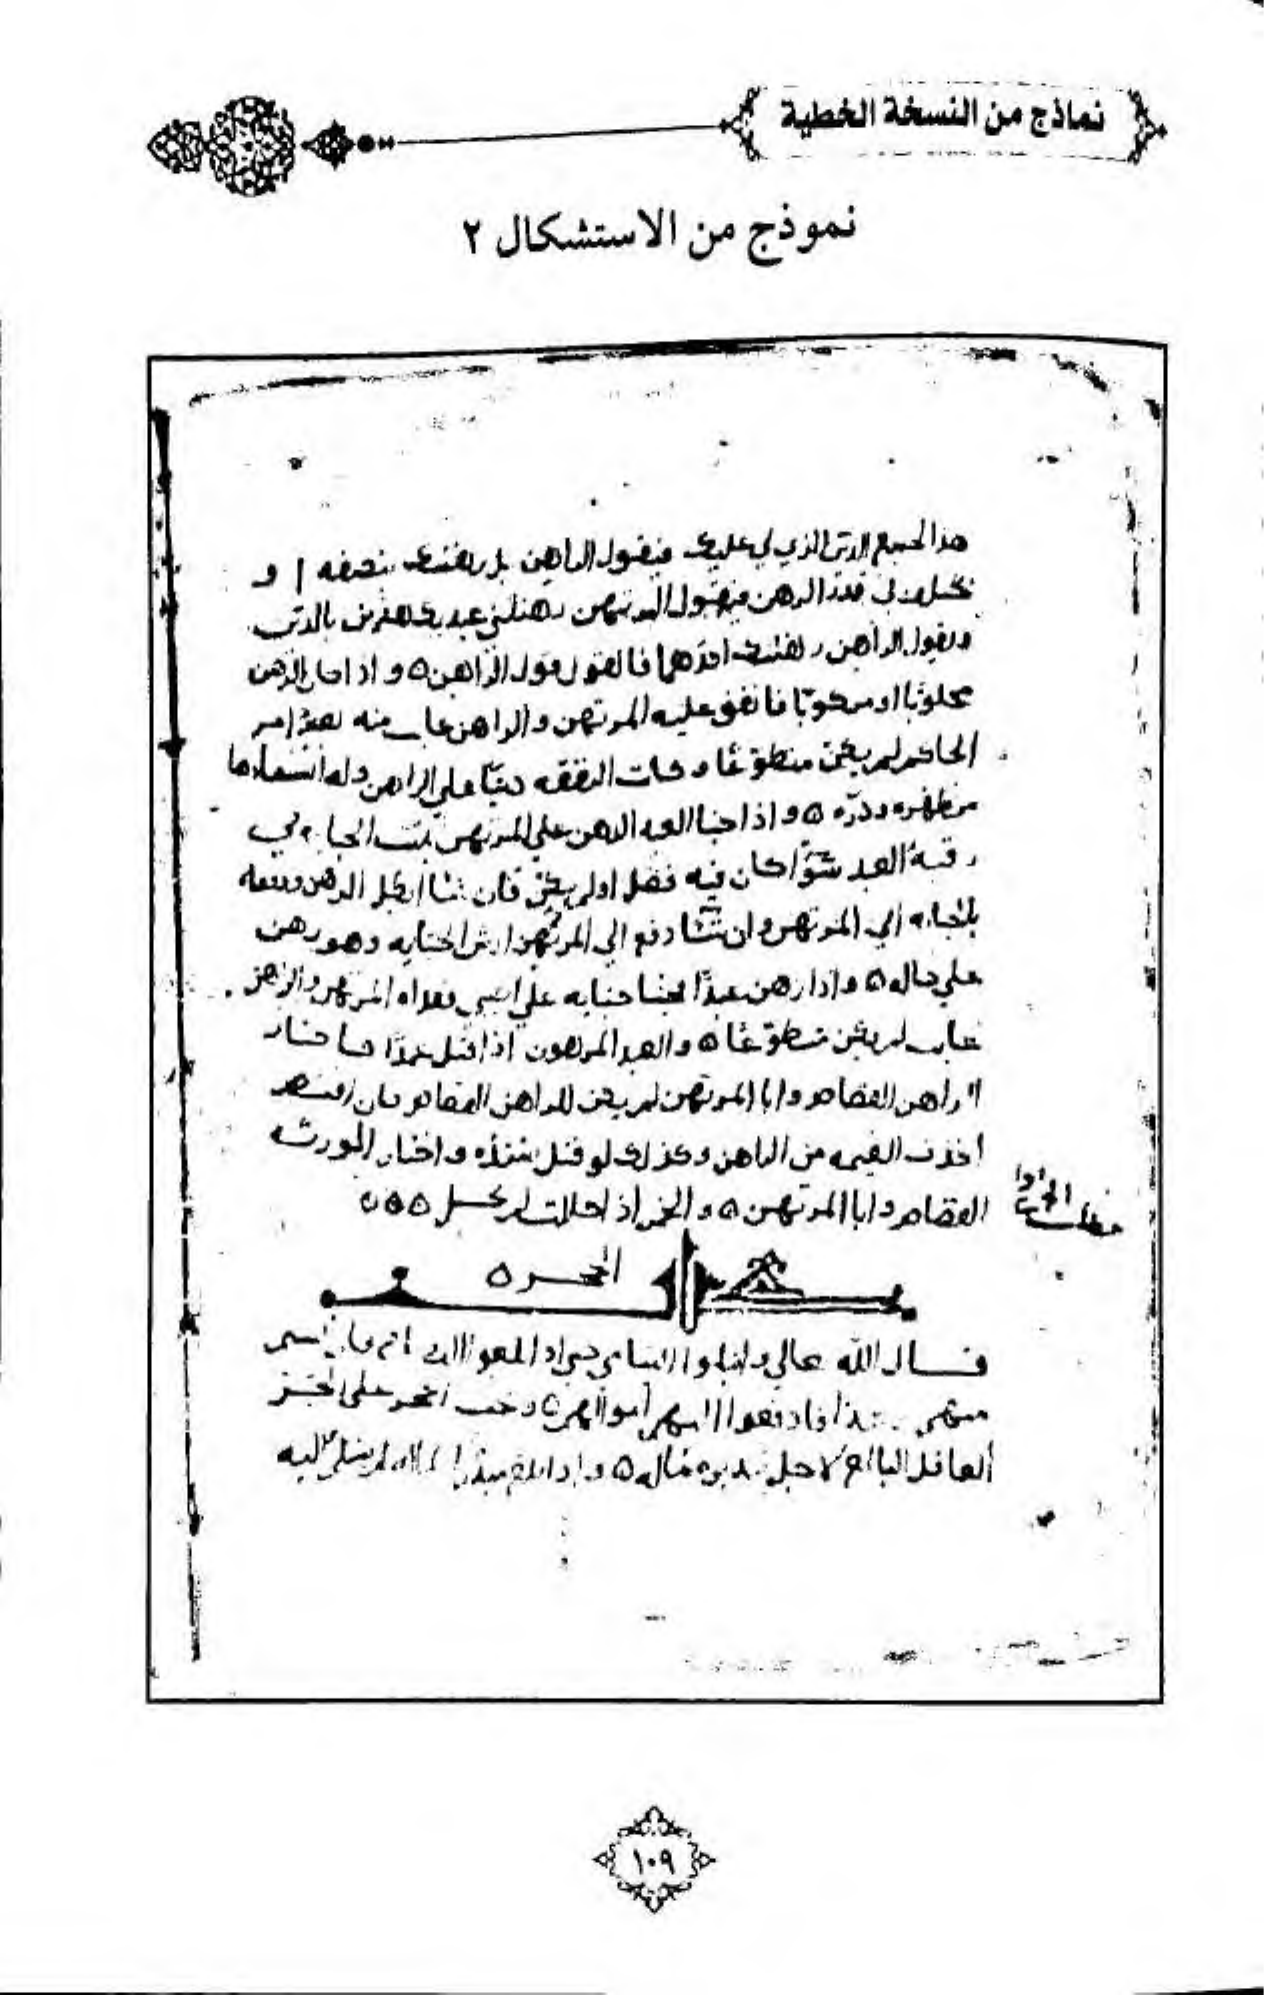 نماذج من النسخة الخطية
نموذج من الاستشكال ٢
هذا لجميع الدين الذي لي عليك فيقول الراهن بل رهنتك بنصفه او
يختلفان في قدر الرهن فيقول المرتهن رهنتني عبديك هذين بالدين
ويقول الراهن رهنتك احدهما فالقول قول الراهن ٥ و اذا كان الرهن
محلوبًا او مركوبًا فانفق عليه المرتهن والراهن غايب منه بغير امر
الحاكم لم يكن متطوعًا وكانت النفقه دينًا علي الراهن وله استيفاوها
من ظهره ودره ٥ و اذا جنا العبد الرهن علي المرتهن الجنايه في
رقبة العبد سوًا كان فيه فضل او لم يكن فان شا الرهن ودفعه
بالجنايه الي المرتهن وان شا دفع الي المرتهن ارش الجنايه وهو رهن
علي حاله ٥ و اذا رهن عبدًا فجنا جنايه علي اجنبي ففداه المرتهن والراهن
غايب لم يكن متطوعًا ٥ و العبد المرهون اذا قتل عمدًا فاختار
الراهن القصاص وابا المرتهن لم يكن للراهن القصاص فان اقتص
اخذت القيمه من الراهن وكذلك لو قتل سيده واختار الورثه
القصاص وابا المرتهن ٥ و الخمر اذا خللت لم تحل ٥ ٥ ٥
الحجر ٥
قال الله تعالي وابتلوا اليتامى حتى اذا بلغوا النكاح فان انستم
منهم رشدًا فادفعوا اليهم اموالهم ٥ و يجب الحجر على الحر
العاقل البالغ لاجل تبذيره ماله ٥ و اذا بلغ مبذرًا لماله لم يسلم اليه
١٠٩